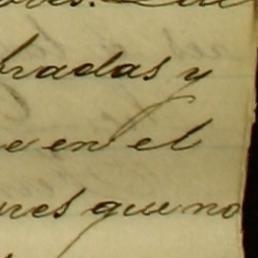 bradas y
e en el
res que no